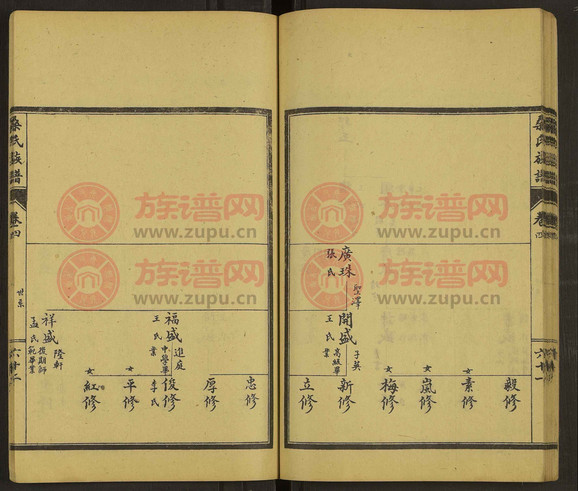 桑氏族譜
卷四
六十一
廣珠
聖澤
張氏
開盛
子英
王氏
高級畢業
毅修
女 素修
嵐修
女 梅修
新修
立修
忠修
厚修
福盛
進庭
中學畢業
王氏
俊修
李氏
女 平修
女 紅修
祥盛
隆軒
孟氏
後期師範畢業
世系
桑氏族譜
卷四
六十二
族谱网
www.zupu.cn
族谱网
www.zupu.cn
族谱网
www.zupu.cn
族谱网
www.zupu.cn